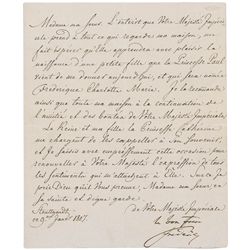 Madame ma Sœur. L'intérêt que Votre Majesté Impériale
prend à tout ce qui regarde ma maison, me
fait espérer qu'Elle apprendra avec plaisir la
naissance d'une petite fille que la Princesse Paul
vient de me donner aujourd'hui, et qui sera nommée
Fréderique Charlotte Marie. Je la recommande
ainsi que toute ma maison à la continuation de
l'amitié et des bontés de Votre Majesté Impériale.
La Reine et ma fille la Princesse Catherine
me chargent de les rappeller à Son Souvenir,
et je saisis avec empressement cette occasion pour
renouveler à Votre Majesté l'expression de tous
les sentimens qui m'attachent à Elle. Sur ce je
prie Dieu qu'il Vous prenne, Madame ma Sœur en
sa sainte et digne garde.
Stuttgardt
ce 9 Janv. 1807.
de Votre Majesté Impériale
le bon frère